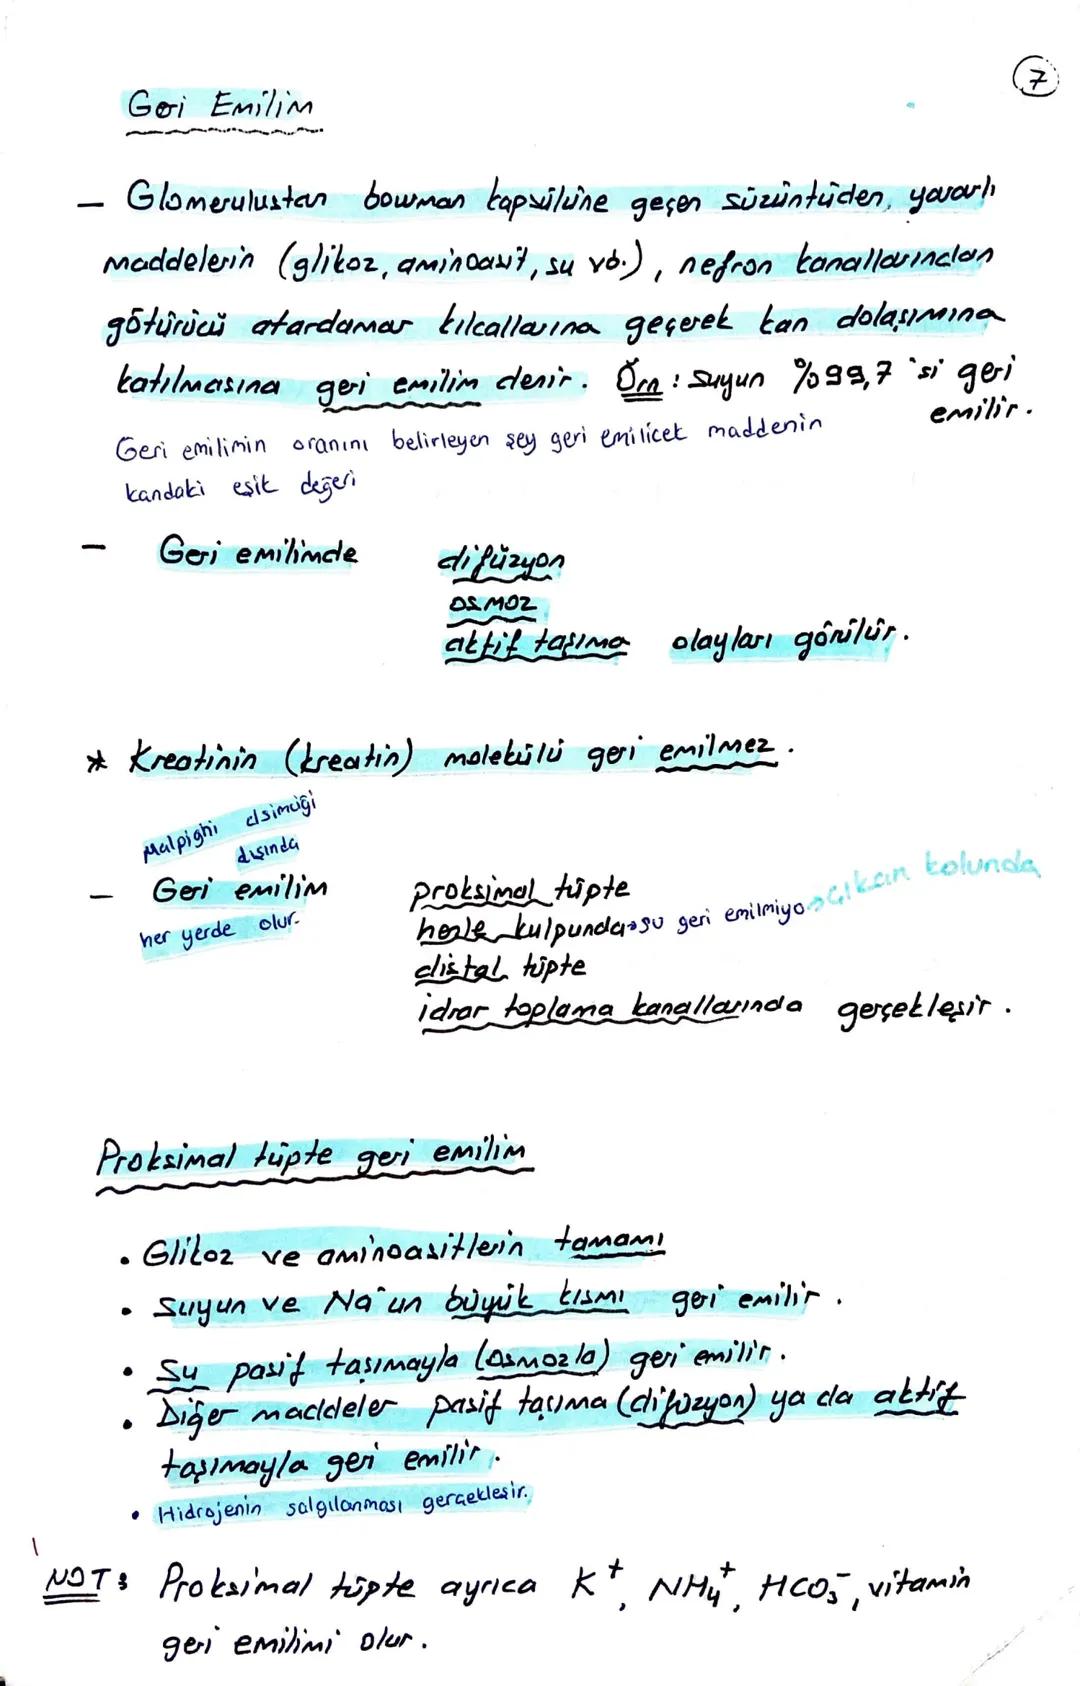 7
Geri Emilim
– Glomerulustan bowman kapsülüne geçen süzüntüden, yararlı
maddelerin (glikoz, aminoasit, su vb.), nefron kanallarından
götürücü atardamar kılcallarına geçerek kan dolaşımına
katılmasına geri emilim denir. Örn: Suyun %99,7 'si geri
emilir.
Geri emilimin oranını belirleyen şey geri emilicek maddenin
kandaki eşik değeri
– Geri emilimde difüzyon
osmoz
aktif taşıma olayları görülür.
* Kreatinin (kreatin) molekülü geri emilmez.
Malpighi cisimciği
dışında
– Geri emilim proksimal tüpte
her yerde olur.
henle kulpunda→su geri emilmiyo→çıkan kolunda
distal tüpte
idrar toplama kanallarında gerçekleşir.
Proksimal tüpte geri emilim
• Glikoz ve aminoasitlerin tamamı
• Suyun ve Na⁺un büyük kısmı geri emilir.
• Su pasif taşımayla (osmozla) geri emilir.
• Diğer maddeler pasif taşıma (difüzyon) ya da aktif
taşımayla geri emilir.
• Hidrojenin salgılanması gerçekleşir.
NOT: Proksimal tüpte ayrıca K⁺, NH₄⁺, HCO₃⁻, vitamin
geri emilimi olur.